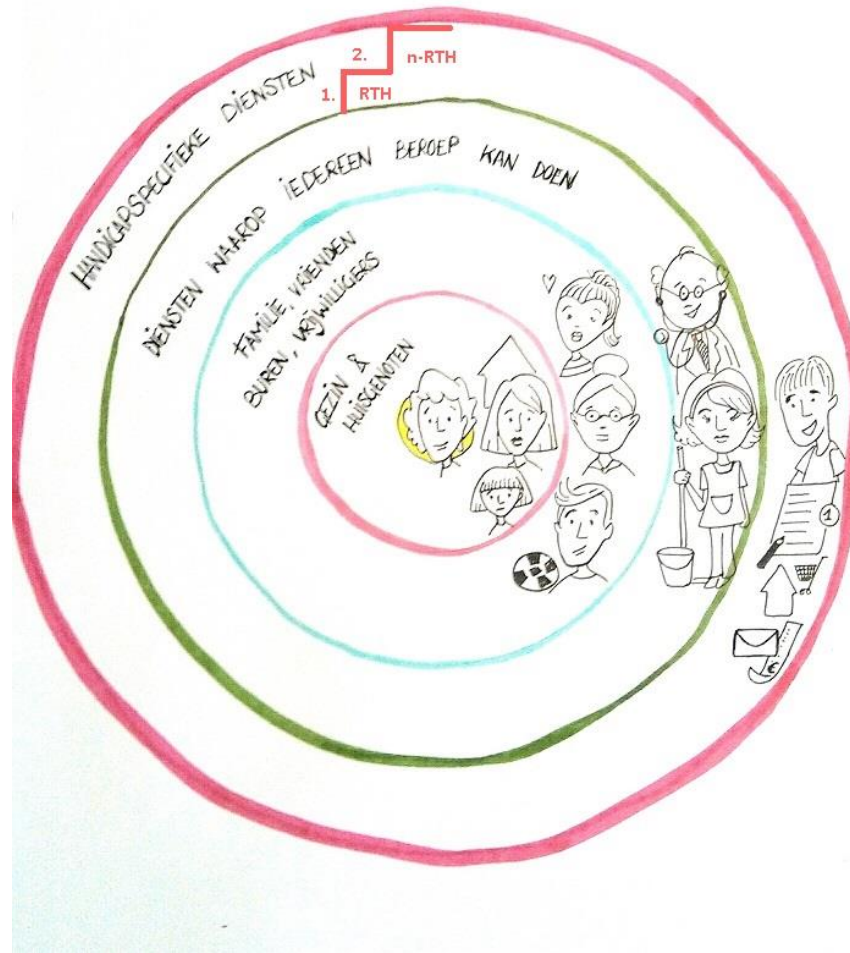 2.
n-RTH
1.
RTH
HANDICAPSPECIFIEKE DIENSTEN
DIENSTEN WAAROP IEDEREEN BEROEP KAN DOEN
FAMILIE, VRIENDEN
BUREN, VRIJWILLIGERS
GEZIN &
HUISGENOTEN
1
€